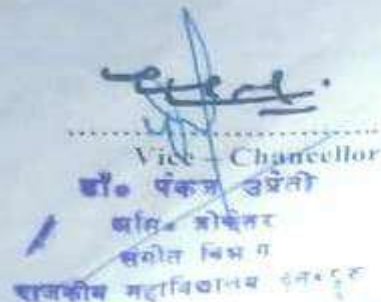 Vice - Chancellor
डॉ० पंकज उप्रेती
असि० प्रोफेसर
संगीत विभाग
राजकीय महाविद्यालय